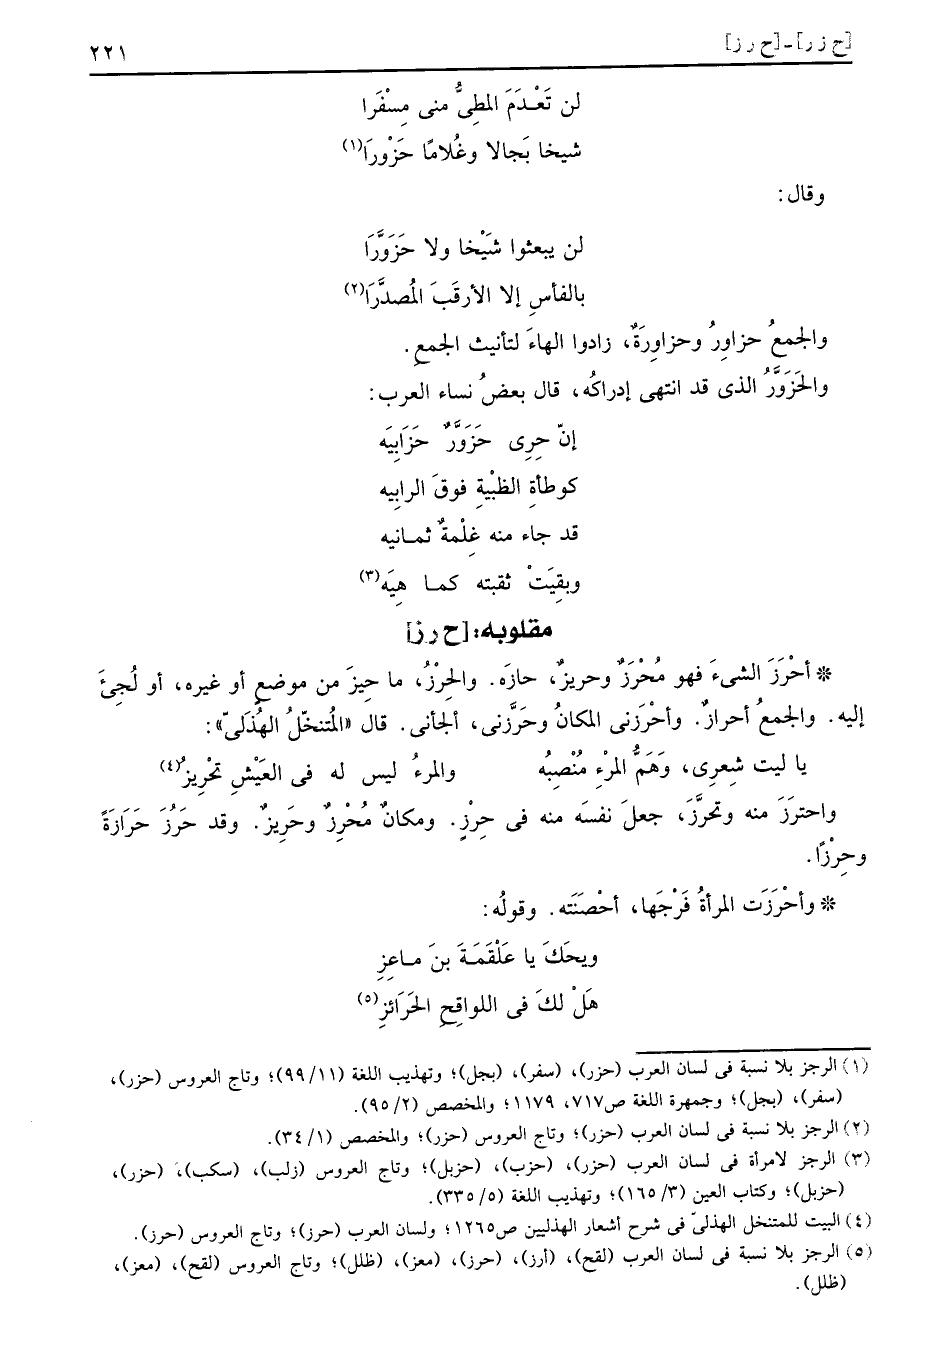 [ح ز ر] - [ح ر ز]
٢٢١
لن تَعْدَمَ المطِىُّ منى مِسْفَرا
شيخا بَجالا وغُلامًا حَزْورَا(١)
وقال:
لن يبعثوا شَيْخا ولا حَزَوَّرَا
بالفأسِ إلا الأرقَبَ المُصدَّرَا(٢)
والجمعُ حزاوِرُ وحزاوِرَةٌ، زادوا الهاءَ لتأنيث الجمعِ.
والحَزَوَّرُ الذى قد انتهى إدراكُه، قال بعضُ نساء العرب:
إنّ حِرِى حَزَوَّرٌ حَزَابيَه
كوطأةِ الظبْيةِ فوقَ الرابِيه
قد جاء منه غِلْمةٌ ثمـانيه
وبقِيَتْ ثقبته كمـا هِيَه(٣)
مقلوبه: [ح ر ز]
* أحْرَزَ الشىءَ فهو مُحْرَزٌ وحريزٌ، حازَه. والحِرْزُ، ما حِيزَ من موضعٍ أو غيره، أو لُجِئَ
إليه. والجمعُ أحرازٌ. وأحْرَزنى المكانُ وحَرَّزنى، ألجأنى. قال «المُتنخّلُ الهُذَلىّ»:
يا ليت شعرِى، وَهَمُّ المرْءِ مُنْصِبُه والمرءُ ليس له فى العَيْشِ تحْرِيزُ(٤)
واحترَزَ منه وتحرَّزَ، جعلَ نفسَه منه فى حِرْزٍ. ومكانٌ مُحْرِزٌ وحَرِيزٌ. وقد حَرُزَ حَرَازَةً
وحِرْزًا.
* وأحْرَزَت المرأةُ فَرْجَها، أحْصَنَته. وقولُه:
ويحَكَ يا عَلْقَمَةَ بنَ مـاعِزِ
هَلْ لكَ فى اللواقِحِ الحَرَائزِ(٥)
(١) الرجز بلا نسبة فى لسان العرب (حزر)، (سفر)، (بجل)؛ وتهذيب اللغة (١١/ ٩٩)؛ وتاج العروس (حزر)،
(سفر)، (بجل)؛ وجمهرة اللغة ص٧١٧، ١١٧٩؛ والمخصص (٢/ ٩٥).
(٢) الرجز بلا نسبة فى لسان العرب (حزر)؛ وتاج العروس (حزر)؛ والمخصص (١/ ٣٤).
(٣) الرجز لامرأة فى لسان العرب (حزر)، (حزب)، (حزبل)؛ وتاج العروس (زلب)، (سكب)، (حزر)،
(حزبل)؛ وكتاب العين (٣/ ١٦٥)؛ وتهذيب اللغة (٥/ ٣٣٥).
(٤) البيت للمتنخل الهذلىّ فى شرح أشعار الهذليين ص١٢٦٥؛ ولسان العرب (حرز)؛ وتاج العروس (حرز).
(٥) الرجز بلا نسبة فى لسان العرب (لقح)، (أرز)، (حرز)، (معز)، (ظلل)؛ وتاج العروس (لقح)، (معز)،
(ظلل).